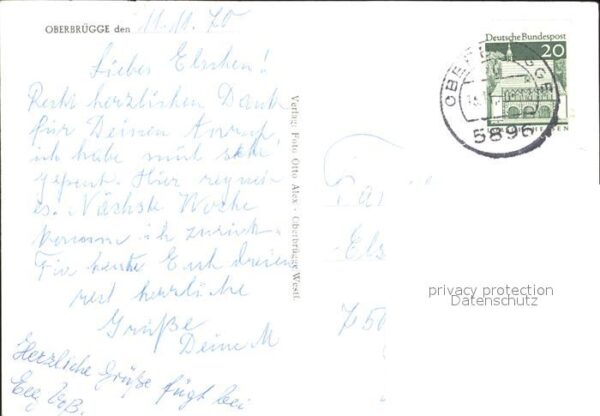 OBERBRÜGGE den 11.11.70
Liebes Elschen!
Recht herzlichen Dank
für Deinen Anruf,
ich habe mich sehr
gefreut. Hier regnet
es. Nächste Woche
komme ich zurück.
Für heute Euch dreien
recht herzliche
Grüße
Deine M
Herzliche Grüße fügt bei
Verlag: Foto Otto Alex - Oberbrügge Westf.
Deutsche Bundespost
20
5896
Fa
Els
750
privacy protection
Datenschutz